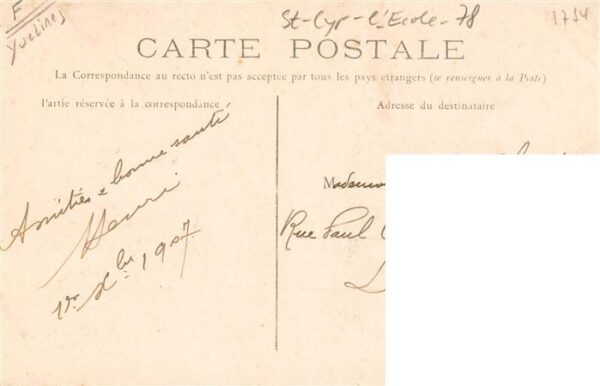 F
Yvelines
St-Cyr-l'Ecole-78
1754
CARTE POSTALE
La Correspondance au recto n'est pas acceptée par tous les pays étrangers (se renseigner à la Poste)
Partie réservée à la correspondance
Amitiés & bonne santé
Henri
1er Xbre 1907
Adresse du destinataire
Rue Paul